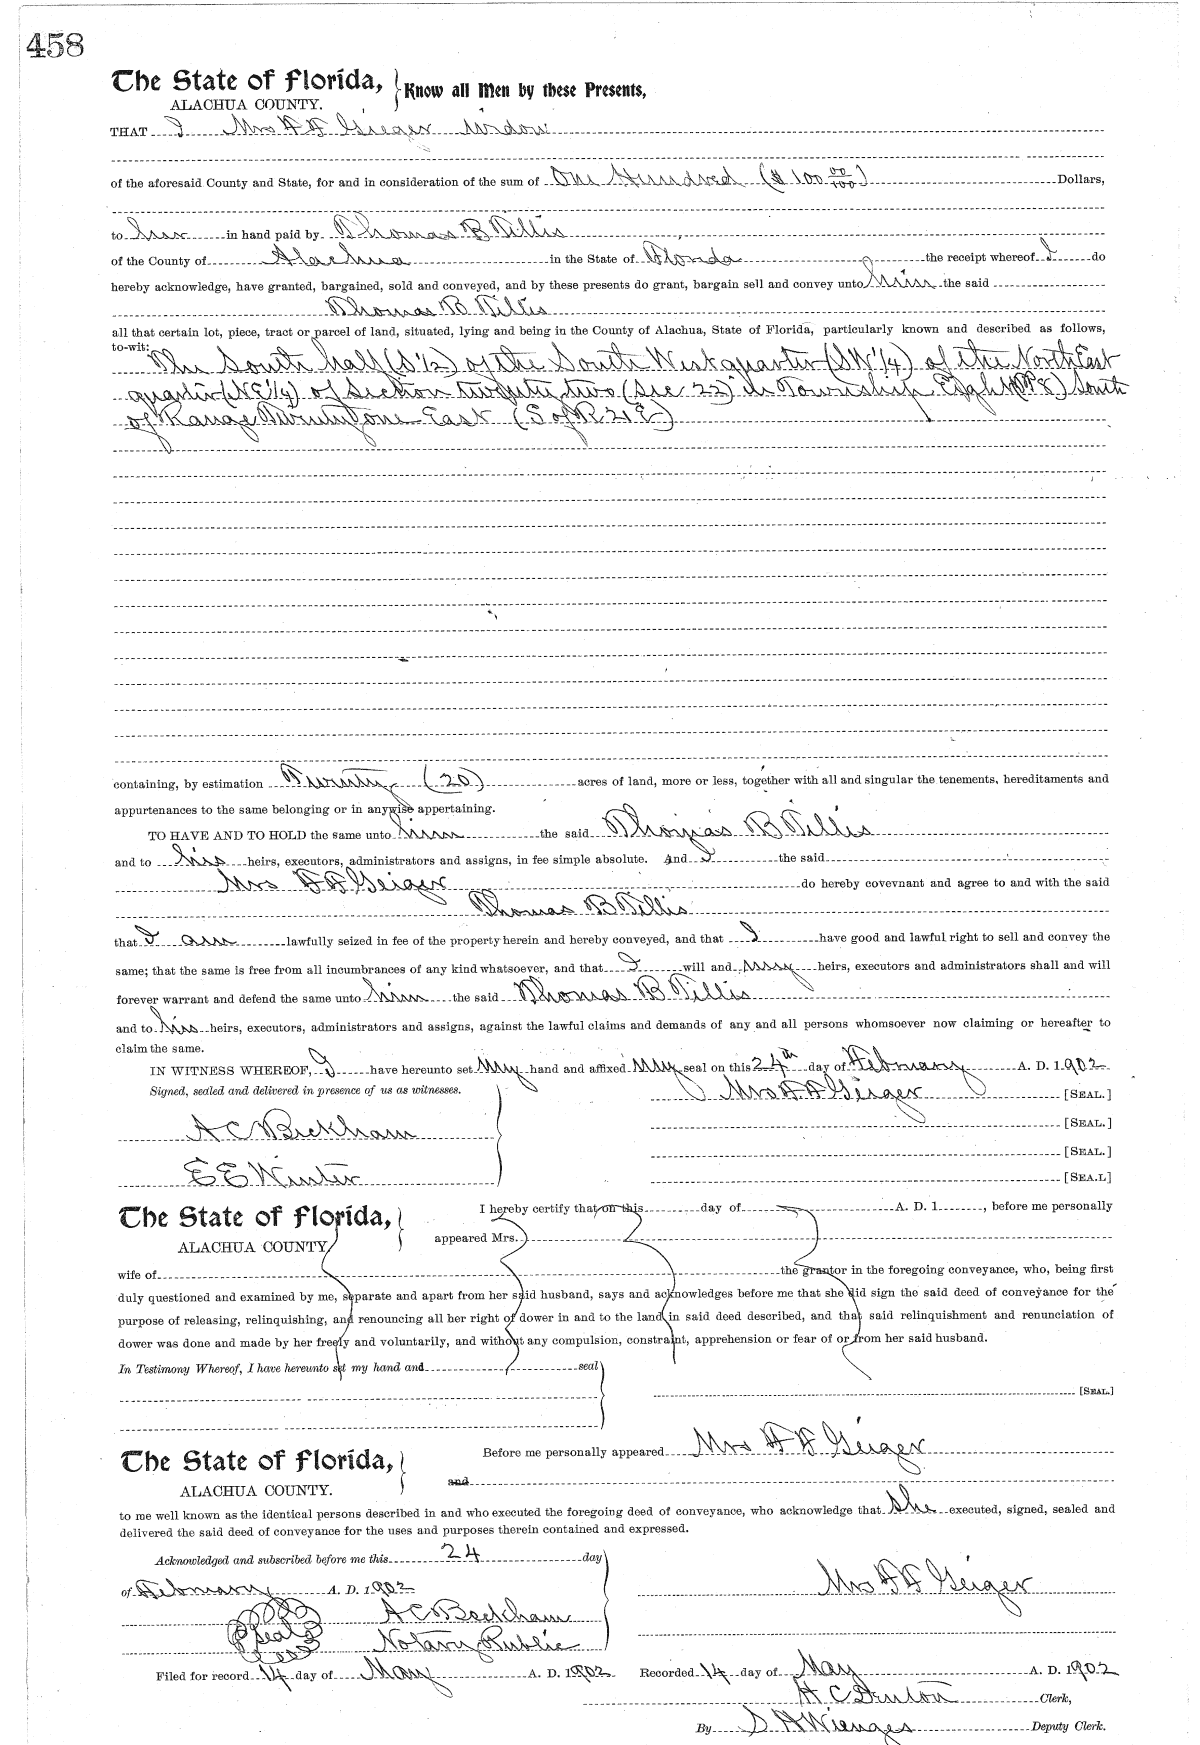 458
The State of Florida, Know all Men by these Presents,
ALACHUA COUNTY.
THAT I Mrs F F Geiger widow
of the aforesaid County and State, for and in consideration of the sum of One Hundred ($100 00/100) Dollars,
to in hand paid by Thomas B Tillis
of the County of Alachua in the State of Florida the receipt whereof I do
hereby acknowledge, have granted, bargained, sold and conveyed, and by these presents do grant, bargain sell and convey unto him the said
Thomas B Tillis
all that certain lot, piece, tract or parcel of land, situated, lying and being in the County of Alachua, State of Florida, particularly known and described as follows,
to-wit: The South half (S 1/2) of the South West quarter (SW 1/4) of the North East
quarter (NE 1/4) of Section twenty two (Sec 22) in Township Eight (TP 8) South
of Range Twenty one East (S of R 21 E)
containing, by estimation Twenty (20) acres of land, more or less, together with all and singular the tenements, hereditaments and
appurtenances to the same belonging or in anywise appertaining.
TO HAVE AND TO HOLD the same unto him the said Thomas B Tillis
and to his heirs, executors, administrators and assigns, in fee simple absolute. And I the said
Mrs F F Geiger do hereby covevnant and agree to and with the said
Thomas B Tillis
that I am lawfully seized in fee of the property herein and hereby conveyed, and that I have good and lawful right to sell and convey the
same; that the same is free from all incumbrances of any kind whatsoever, and that I will and my heirs, executors and administrators shall and will
forever warrant and defend the same unto him the said Thomas B Tillis
and to his heirs, executors, administrators and assigns, against the lawful claims and demands of any and all persons whomsoever now claiming or hereafter to
claim the same.
IN WITNESS WHEREOF, I have hereunto set my hand and affixed my seal on this 24th day of February A. D. 1902
Signed, sealed and delivered in presence of us as witnesses. Mrs F F Geiger [SEAL.]
A C Beckham [SEAL.]
[SEAL.]
E E Winter [SEA.L]
The State of Florida, I hereby certify that on this day of A. D. 1 , before me personally
ALACHUA COUNTY. appeared Mrs.
wife of the grantor in the foregoing conveyance, who, being first
duly questioned and examined by me, separate and apart from her said husband, says and acknowledges before me that she did sign the said deed of conveyance for the
purpose of releasing, relinquishing, and renouncing all her right of dower in and to the land in said deed described, and that said relinquishment and renunciation of
dower was done and made by her freely and voluntarily, and without any compulsion, constraint, apprehension or fear of or from her said husband.
In Testimony Whereof, I have hereunto set my hand and seal
[SEAL.]
The State of Florida, Before me personally appeared Mrs F F Geiger
ALACHUA COUNTY. and
to me well known as the identical persons described in and who executed the foregoing deed of conveyance, who acknowledge that she executed, signed, sealed and
delivered the said deed of conveyance for the uses and purposes therein contained and expressed.
Acknowledged and subscribed before me this 24 day
of February A. D. 1902 Mrs F F Geiger
Seal A C Beckham
Notary Public
Filed for record 14 day of May A. D. 1902 Recorded 14 day of May A. D. 1902
H C Denton Clerk,
By S H Wienges Deputy Clerk.